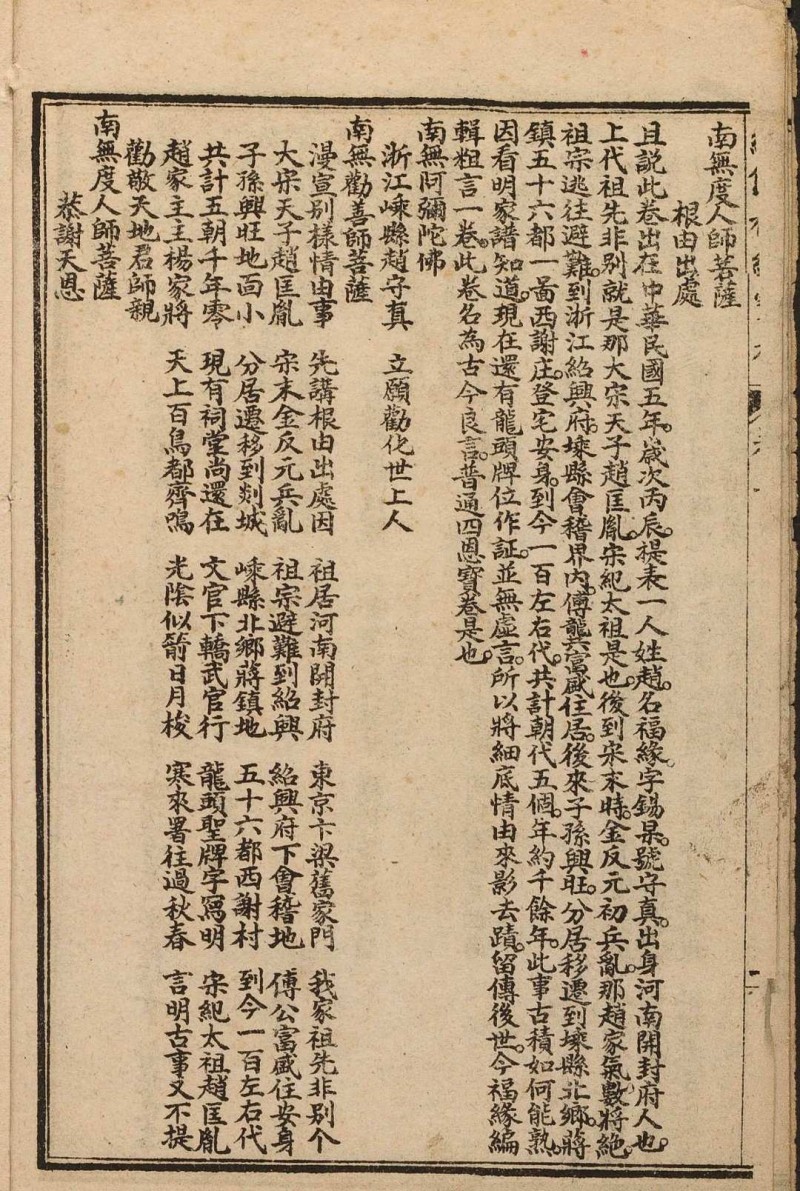 南無度人師菩薩
根由出處
且説此卷出在中華民國五年。歲次丙辰。提表一人姓趙。名福緣。字錫杲。號守真。出身河南開封府人也。
上代祖先非別就是那大宋天子趙匡胤。宋紀太祖是也。後到宋末時。金反元初兵亂。那趙家氣數將絶。
祖宗逃往避難。到浙江紹興府。嵊縣會稽界內。傅龔富盛住居。後來子孫興旺。分居移遷到嵊縣北鄉。蔣
鎮五十六都一啚西謝庄。登宅安身。到今一百左右代。共計朝代五個。年約千餘年。此事古積如何能熟。
因看明家譜知道。現在還有龍頭牌位作証。並無虛言。所以將細底情由來影去蹟。留傳後世。今福緣編
輯粗言一卷。此卷名為古今良言。普通四恩寶卷是也。
南無阿彌陀佛
浙江嵊縣趙守真　立願勸化世上人
南無勸善師菩薩
漫宣別樣情由事　先講根由出處因　祖居河南開封府　東京卞梁舊家門　我家祖先非別个
大宋天子趙匡胤　宋末金反元兵亂　祖宗避難到紹興　紹興府下會稽地　傅公富盛住安身
子孫興旺地面小　分居遷移到剡城　嵊縣北鄉蔣鎮地　五十六都西謝村　到今一百左右代
共計五朝千年零　現有祠堂尚還在　文官下轎武官行　龍頭聖牌字寫明　宋紀太祖趙匡胤
趙家主主楊家將　天上百鳥都齊鳴　光陰似箭日月梭　寒來署往過秋春　言明古事又不提
勸敬天地君師親
南無度人師菩薩
恭謝天恩